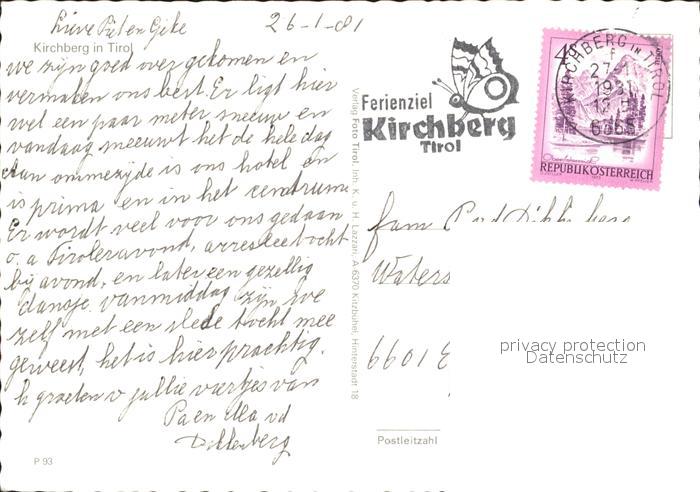 Lieve Peter en Geke 26-1-81
Kirchberg in Tirol
we zijn goed over gekomen en
vermaken ons best. Er ligt hier
wel een paar meter sneeuw en
vandaag sneeuwt het de hele dag
aan ommezijde is ons hotel en
is prima en in het centrum
Er wordt veel voor ons gedaan
o.a Tiroleravond, arresleetocht
bij avond, en later een gezellig
dansje. vanmiddag zijn we
zelf met een slede tocht mee
geweest, het is hier prachtig.
h groeten v jullie van
Pa en Ma vd
P 93
Verlag Foto Tirol, Inh. K. u. H. Lazzari, A-6370 Kitzbühel, Hinterstadt 18
Ferienziel
Kirchberg
Tirol
KIRCHBERG IN TIROL
27-1
1981
6365
4S
REPUBLIK ÖSTERREICH
fam P vd
Waters
6601 E
privacy protection
Datenschutz
Postleitzahl